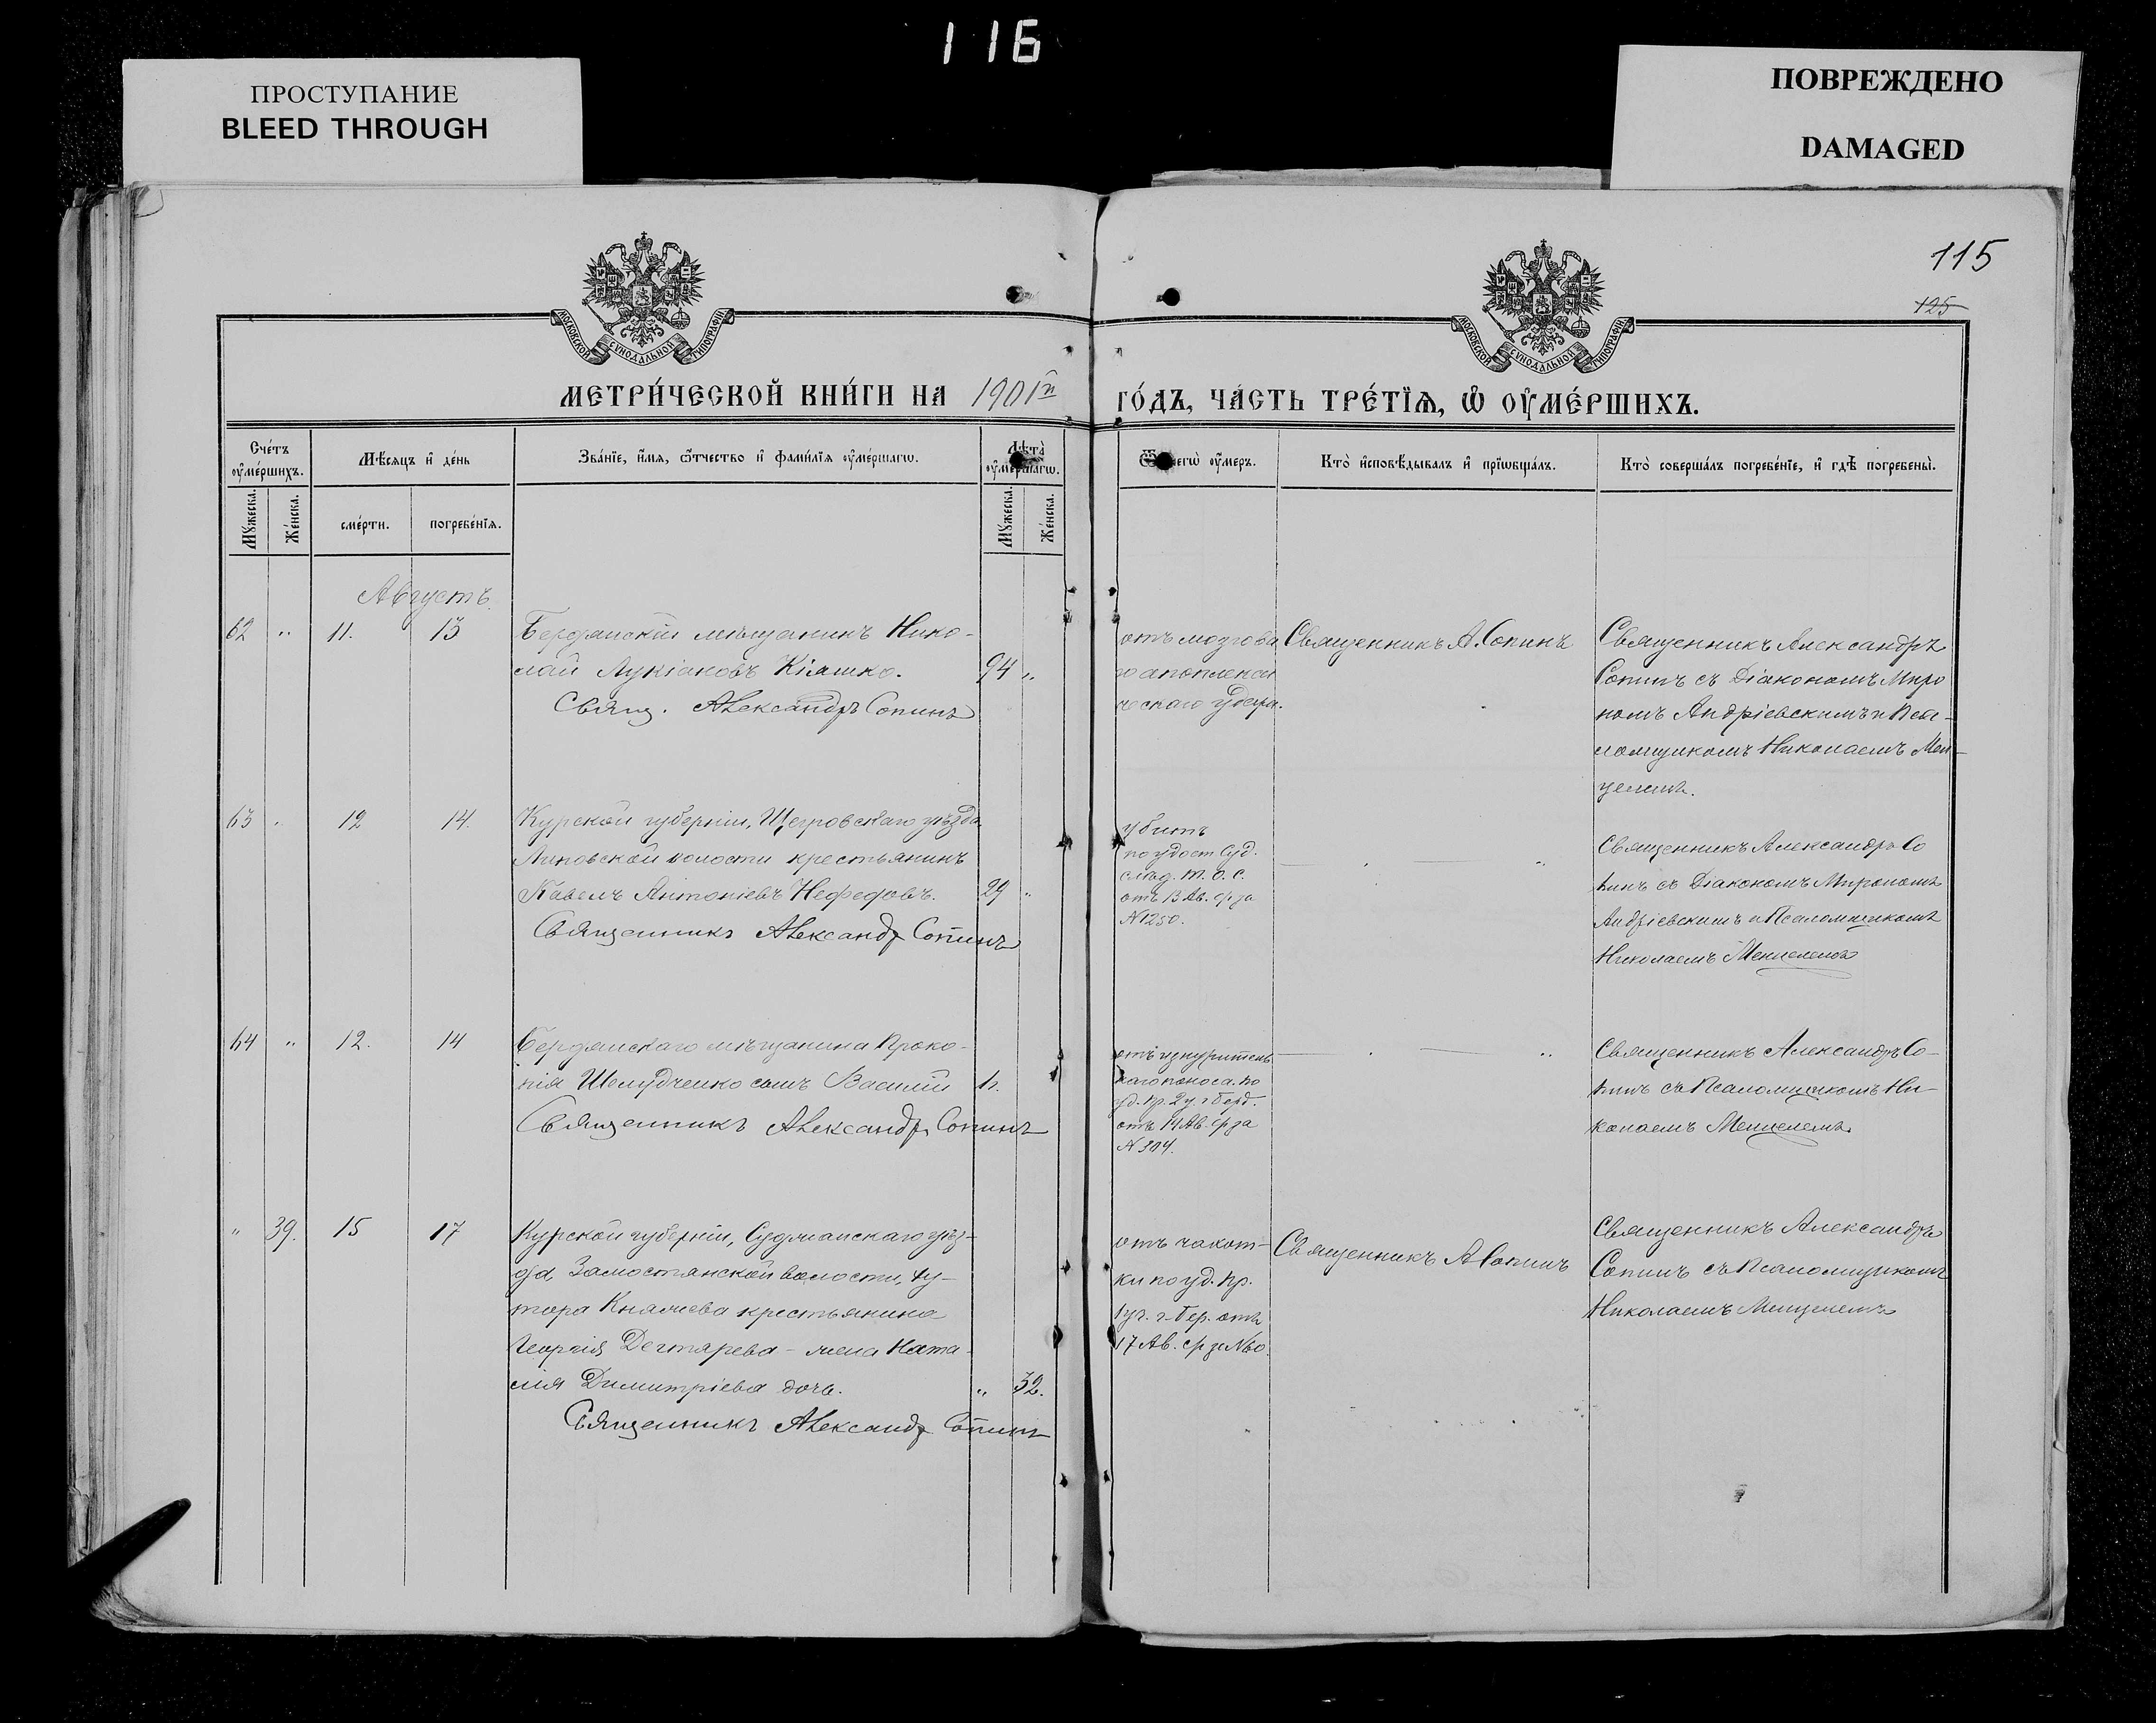 116
ПРОСТУПАНИЕ
BLEED THROUGH
ПОВРЕЖДЕНО
DAMAGED
115
125
МОСКОВСКОЙ СѴНОДАЛЬНОЙ ТИПОГРАФІИ
МОСКОВСКОЙ СѴНОДАЛЬНОЙ ТИПОГРАФІИ
МЕТРИ́ЧЕСКОЙ КНИ́ГИ НА 1901й
ГО́ДЪ, ЧА́СТЬ ТРЕ́ТЇѦ, Ѽ ОУ҆МЕ́РШИХЪ.
Сче́тъ оу҆ме́ршихъ.
Мѣ́сяцъ и҆ де́нь
Зва́нїе, и҆́мѧ, ѻ҆́тчество и҆ фами́лїѧ оу҆ме́ршагѡ.
Лѣта̀ оу҆ме́ршагѡ.
оу҆́меръ.
Кто̀ и҆сповѣ́дывалъ и҆ прїѡбща́лъ.
Кто̀ соверша́лъ погребе́нїе, и҆ гдѣ̀ погребены̀.
Мꙋ́жеска.
Же́нска.
сме́рти.
погребе́нїѧ.
Мꙋ́жеска.
Же́нска.
Августъ.
62 " 11. 13 Бердянскій мѣщанинъ Нико-
лай Лукіановъ Кіяшко. 94 "
Свящ. Александръ Сопинъ
отъ мозгова
го апоплекси
ческаго удара.
Священникъ А. Сопинъ
Священникъ Александръ
Сопинъ съ Діакономъ Миро
номъ Андріевскимъ и Пса-
ломщикомъ Николаемъ Мен-
63 " 12 14. Курской губерніи, Щегровскаго уѣзда
Липовской волости крестьянинъ
Павелъ Антоніевъ Нефедовъ. 29 "
Священникъ Александръ Сопинъ
убитъ
по удост Суд.
слѣд. Т. О. С.
отъ 13 Ав. с/г за
N 1250.
Священникъ Александръ Со
пинъ съ Діакономъ Мирономъ
Андріевскимъ и Псаломщикомъ
Николаемъ
64 " 12. 14 Бердянскаго мѣщанина Проко-
пія Шелудченко сынъ Василій
Священникъ Александръ Сопинъ
отъ изнуритель
наго поноса. по
уд. вр. 2 у. г. Берд.
отъ 14 Ав. с/г за
N 304.
Священникъ Александръ Со-
пинъ съ Псаломщикомъ Ни-
колаемъ
" 39. 15 17 Курской губерніи, Суджанскаго уѣз-
да, Замостянской волости, ху-
тора Княжева крестьянина
Георгія Дегтярева - жена Ната-
лія Димитріева дочь. " 32.
Священникъ Александръ Сопинъ
отъ чахот-
ки по уд. вр.
1 уч. г. Бер. отъ
17 Ав. с/г за N 60.
Священникъ А Сопинъ
Священникъ Александръ
Сопинъ съ Псаломщикомъ
Николаемъ